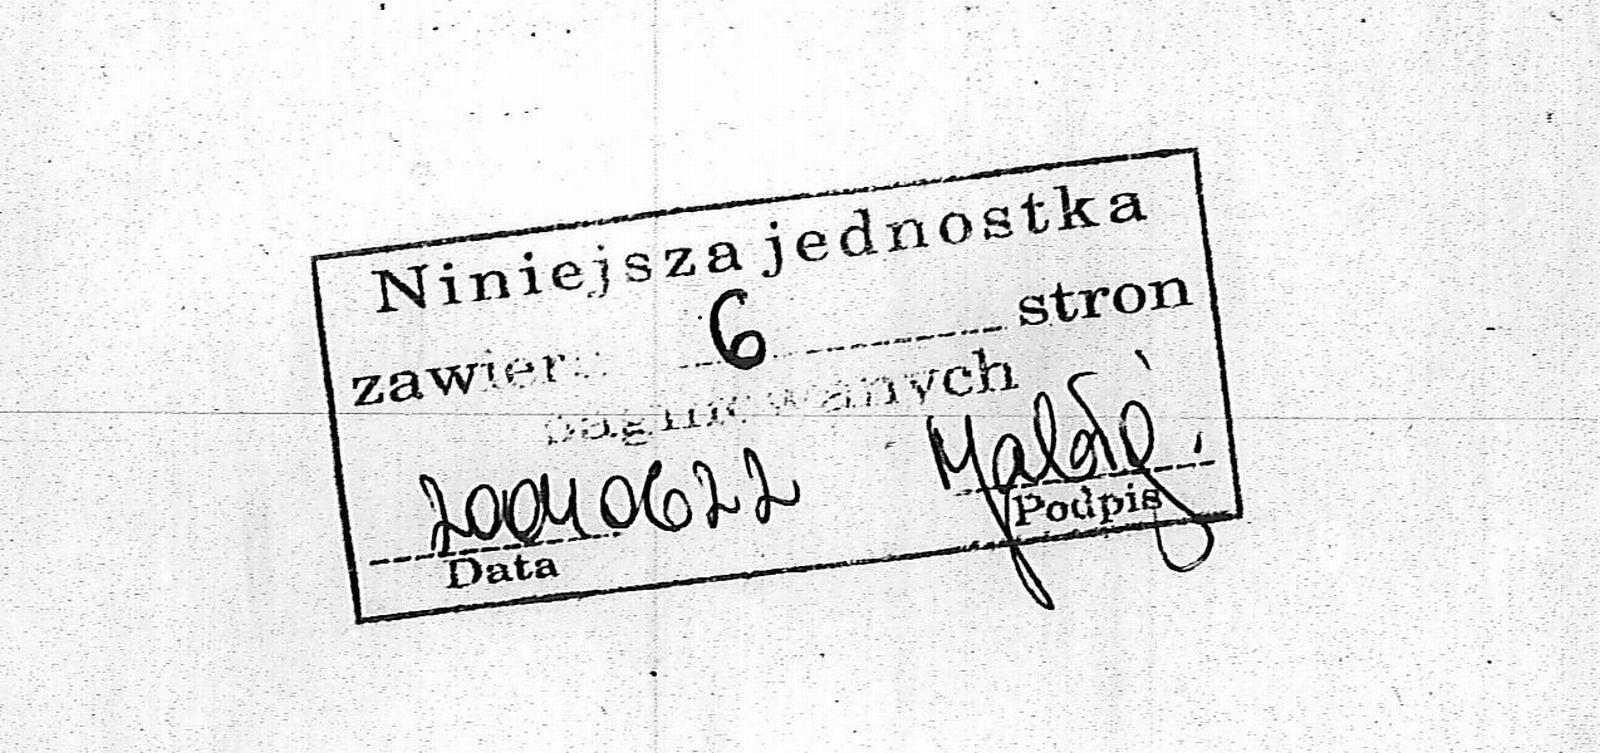 Niniejsza jednostka
zawiera 6 stron
paginowanych
20040622
Data Podpis